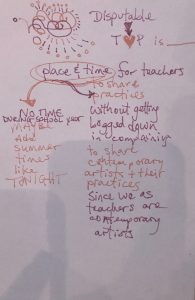 Disputable
T♥P is ___
place & time for teachers
to share
practices
without getting
bogged down
in complaining
to share
contemporary
artists + their
practices
Since we as
teachers are
contemporary
artists
NO TIME
DURING SCHOOL YEAR
maybe
add
summer
times
like
TONIGHT